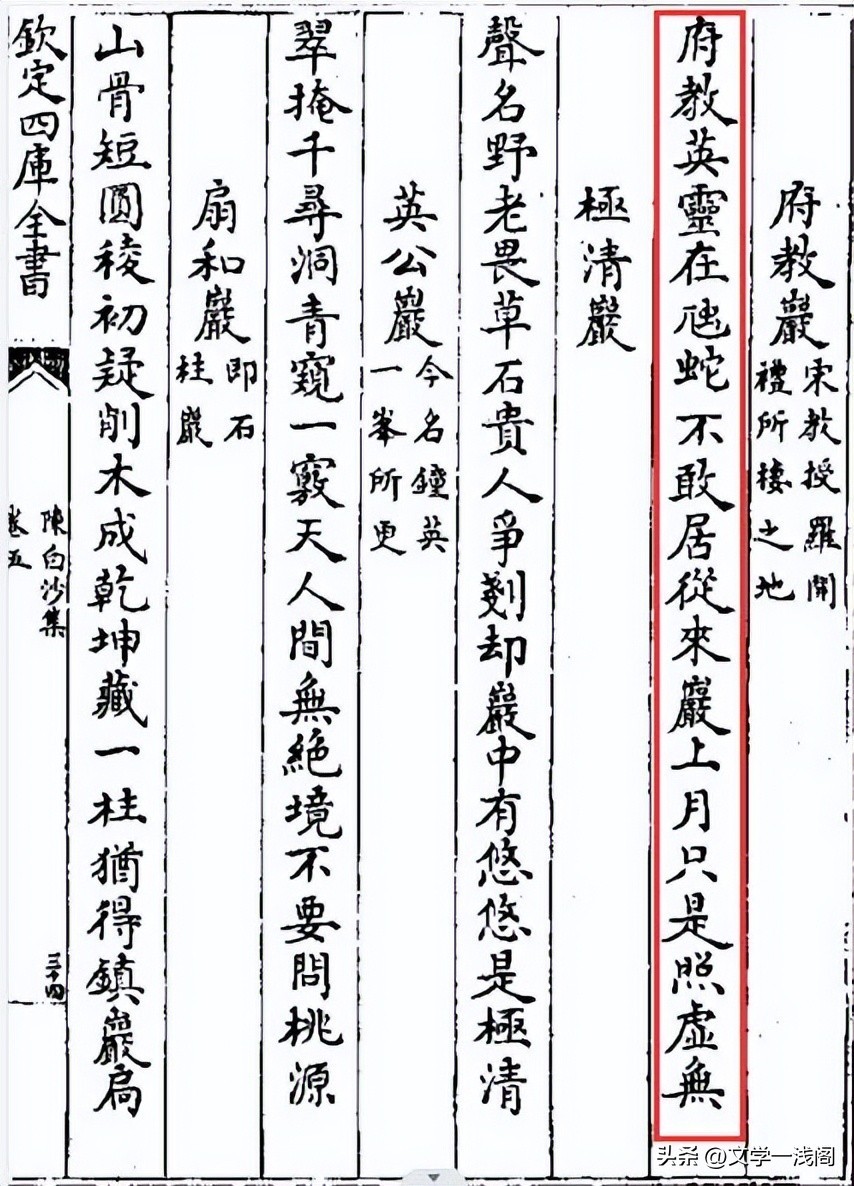 府教巖
宋教授羅開
禮所棲之地
府教英靈在虺蛇不敢居從來巖上月只是照虛無
極清巖
聲名野老畏草石貴人爭剗却巖中有悠悠是極清
英公巖
今名鐘英
一峯所更
翠掩千尋洞青窺一竅天人間無絶境不要問桃源
扇和巖
即石
柱巖
山骨短圓稜初疑削木成乾坤藏一柱猶得鎮巖扃
欽定四庫全書
陳白沙集
卷五
三十四
头条 @文学一浅阁